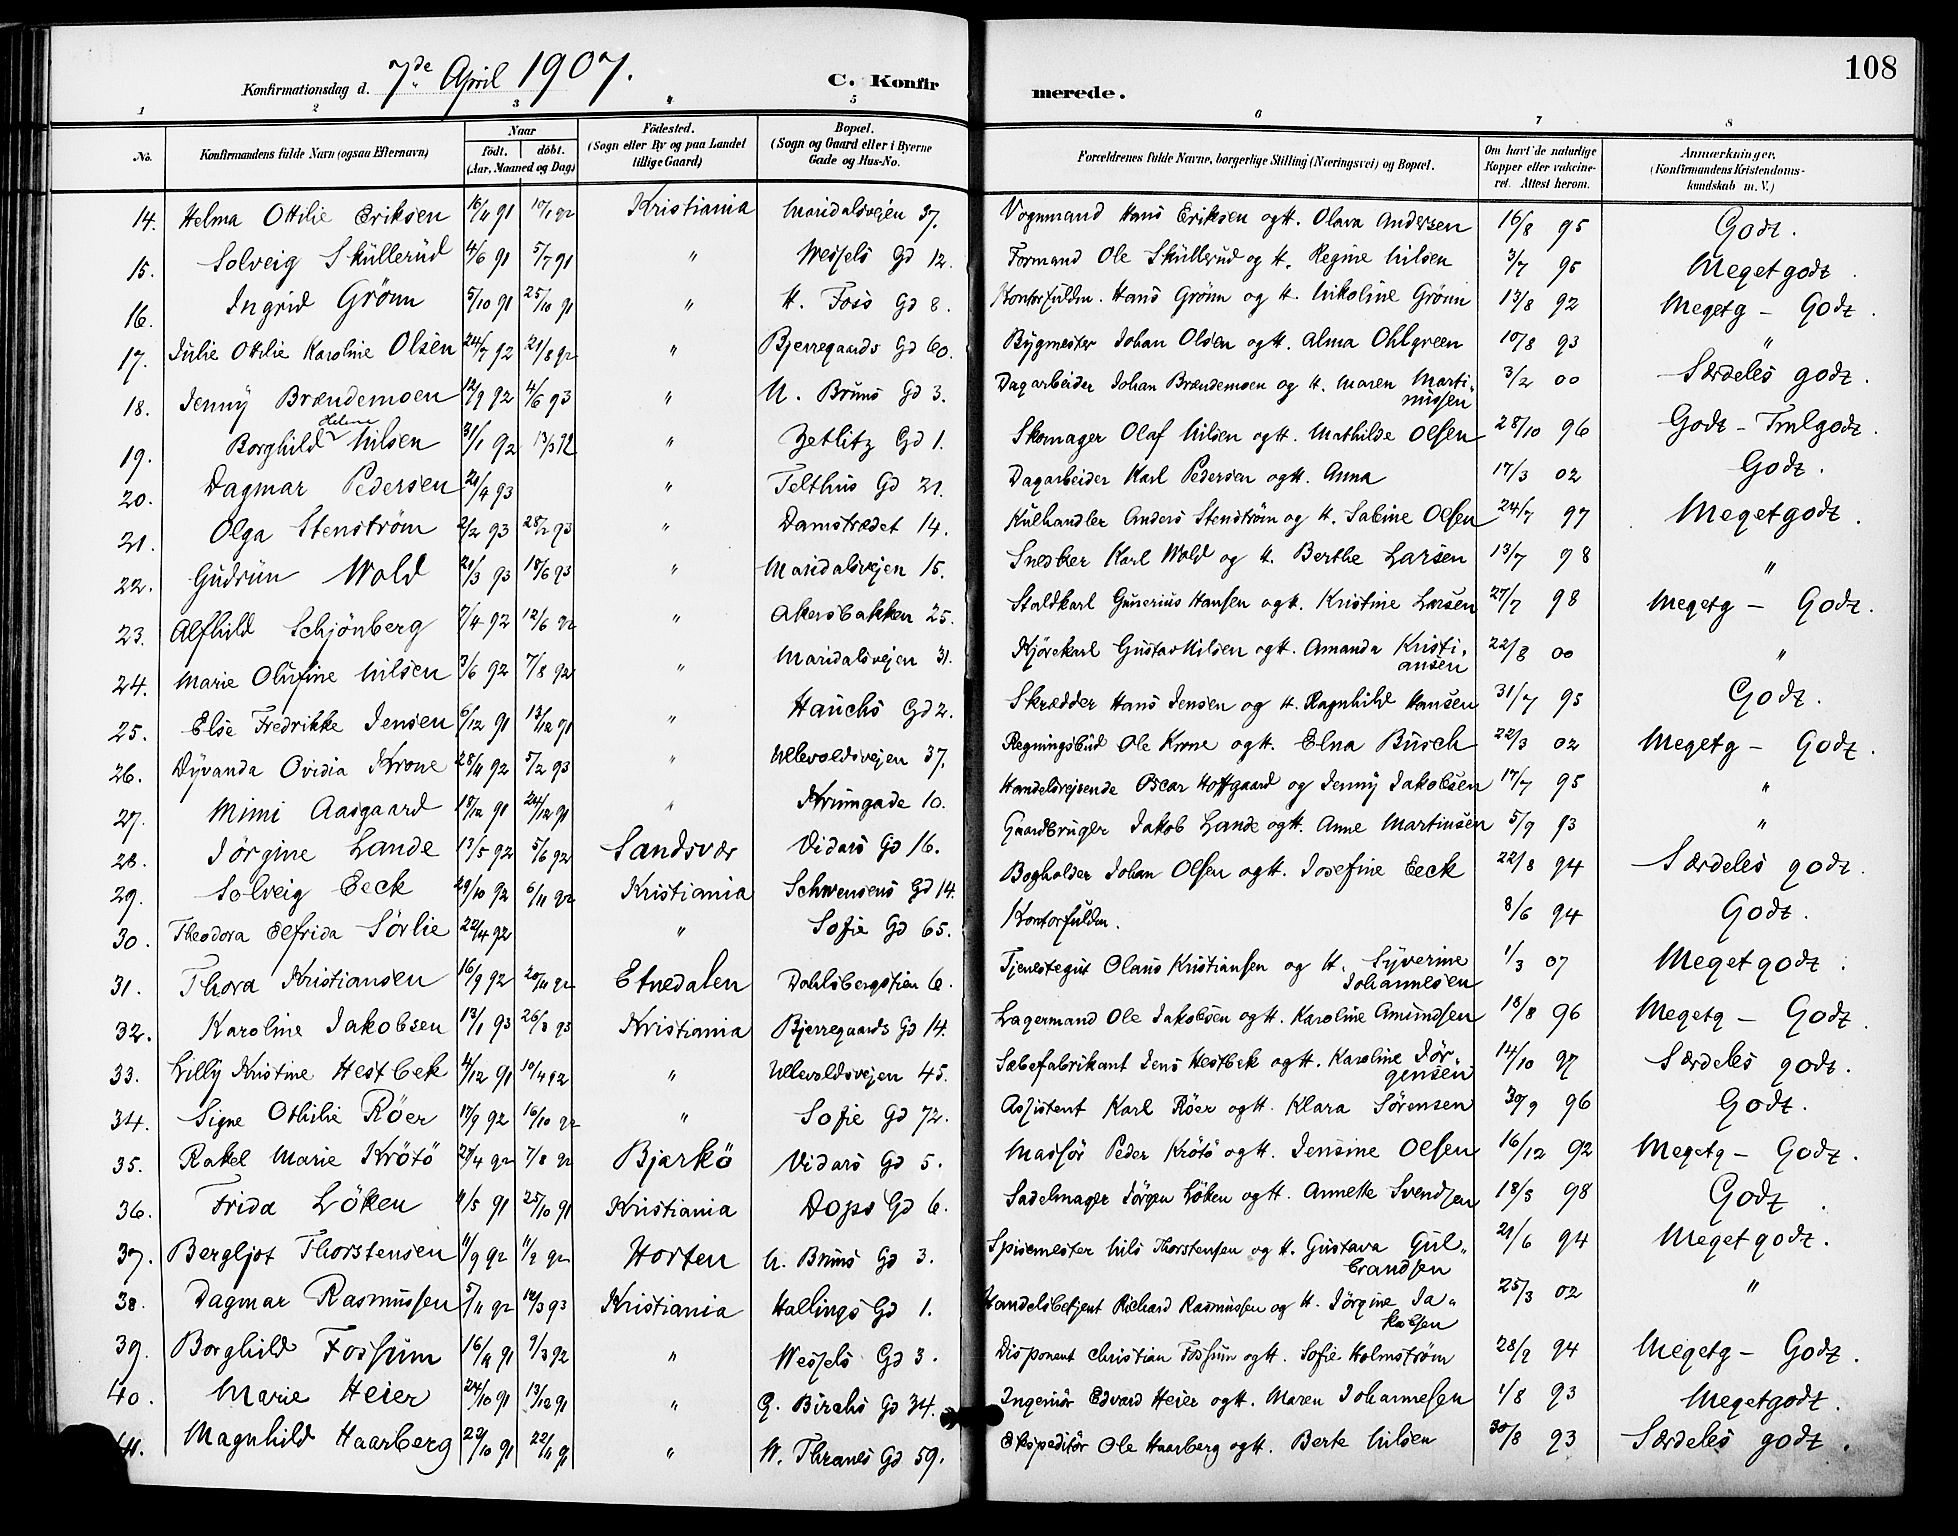 108
Konfirmationsdag d. 7de April 1907. C. Konfirmerede.
1 2 3 4 5 6 7 8
No. Konfirmandens fulde Navn (ogsaa Efternavn) Naar født. døbt. (Aar, Maaned og Dag) Födested. (Sogn eller By og paa Landet tillige Gaard) Bopæl. (Sogn og Gaard eller i Byerne Gade og Hus-No. Forældrenes fulde Navne, borgerlige Stilling (Næringsvei) og Bopæl. Om havt de naturlige Kopper eller vakcineret. Attest herom. Anmærkninger. (Konfirmandens Kristendomskundskab m. V.)
14. Helma Ottilie Eriksen 16/11 91 10/1 92 Kristiania Maridalsvejen 37. Vognmand Hans Eriksen og H. Olava Andersen 16/8 95 Godt.
15. Solveig Skullerud 4/6 91 5/7 91 " Wessels Gd 12. Formand Ole Skullerud og H. Regine Nilsen 3/7 95 Meget godt.
16. Ingrid Grönn 5/10 91 25/10 91 " H. Foss Gd 8. Kontorfuldm. Hans Grönn og H. Nikoline Grönn 13/8 92 Megetg - Godt.
17. Julie Ottilie Karoline Olsen 24/7 92 21/8 92 " Bjerregaards Gd 60. Bygmester Johan Olsen og H. Alma Ohlgreen 10/8 93 "
18. Jenny Brændemoen 12/9 92 4/6 93 " N. Bruns Gd 3. Dagarbeider Johan Brændemoen og H. Maren Martinussen 3/2 00 Særdeles godt.
19. Borghild Helene Nilsen 31/1 92 13/3 92 " Zetlitz Gd 1. Skomager Olaf Nilsen og H. Mathilde Olsen 28/10 96 Godt - Tmlgodt.
20. Dagmar Pedersen 21/4 93 " Telthus Gd 21. Dagarbeider Karl Pedersen og H. Anna 17/3 02 Godt.
21. Olga Stenström 2/2 93 28/2 93 " Damstrædet 14. Kulhandler Anders Stenström og H. Sabine Olsen 24/7 97 Meget godt.
22. Gudrun Wold 21/3 93 18/6 93 " Maridalsvejen 15. Snedker Karl Wold og H. Berthe Larsen 13/7 98 "
23. Alfhild Schjönberg 7/4 92 12/6 92 " Akersbakken 25. Staldkarl Gunerius Hansen og H. Kristine Larsen 27/7 98 Megetg - Godt.
24. Marie Olufine Nilsen 3/6 92 7/8 92 " Maridalsvejen 31. Kjörekarl Gustav Nilsen og H. Amanda Kristiansen 22/8 00 "
25. Else Fredrikke Jensen 6/12 91 13/12 91 " Hauchs Gd 2. Skrædder Hans Jensen og H. Ragnhild Hansen 31/7 95 Godt.
26. Dyvanda Ovidia Krone 28/11 92 5/2 93 " Ullevoldsvejen 37. Regningsbud Ole Krone og H. Elna Busch 22/3 02 Megetg - Godt.
27. Mimi Aasgaard 18/12 91 24/12 91 " Krumgade 10. Handelsrejsende Oscar Hoffgaard og Jenny Jakobsen 17/7 95 "
28. Jörgine Lande 13/5 92 5/6 92 Sandsvær Vidars Gd 16. Gaardbruger Jakob Lande og H. Anne Martinsen 5/9 93 "
29. Solveig Eeck 29/10 92 6/11 92 Kristiania Schwensens Gd 14. Bogholder Johan Olsen og H. Josefine Eeck 22/8 94 Særdeles godt.
30. Theodora Elfrida Sörlie 22/4 92 " Sofie Gd 65. Kontorfuldm. 8/6 94 Godt.
31. Thora Kristiansen 16/9 92 20/11 92 Etnedalen Dahlsbergstien 6. Tjenestegut Olaus Kristiansen og H. Syverine Johannesen 1/3 07 Meget godt.
32. Karoline Jakobsen 13/1 93 26/3 93 Kristiania Bjerregaards Gd 14. Lagermand Ole Jakobsen og H. Karoline Amundsen 18/8 96 Megetg - Godt.
33. Lilly Kristine Hestbek 4/12 91 10/4 92 " Ullevoldsvejen 45. Sæbefabrikant Jens Hestbek og H. Karoline Jörgensen 14/10 97 Særdeles godt.
34. Signe Othilie Röer 17/9 92 16/10 92 " Sofie Gd 72. Assistent Karl Röer og H. Klara Sörensen 30/9 96 Godt.
35. Rakel Marie Krötö 27/4 92 7/8 92 Bjarkö Vidars Gd 5. Massör Peder Krötö og H. Jensine Olsen 16/12 92 Megetg - Godt.
36. Frida Löken 4/5 91 25/10 91 Kristiania Dops Gd 6. Sadelmager Jörgen Löken og H. Annette Svendsen 18/5 98 Godt.
37. Bergljot Thorstensen 11/9 92 11/9 92 Horten N. Bruns Gd 3. Spisemester Nils Thorstensen og H. Gustava Gulbrandsen 21/6 94 Meget godt.
38. Dagmar Rasmussen 5/11 92 12/3 93 Kristiania Hallings Gd 1. Handelsbetjent Richard Rasmussen og H. Jörgine Jakobsen 25/3 02 "
39. Borghild Fossum 16/9 91 9/3 92 " Wessels Gd 3. Disponent Christian Fossum og H. Sofie Holmström 28/9 94 Megetg - Godt.
40. Marie Heier 24/10 91 13/12 91 " G. Birchs Gd 34. Ingeniör Edvard Heier og H. Maren Johannesen 1/8 93 Megetgodt.
41. Magnhild Haarberg 22/10 91 22/11 91 " W. Thranes Gd 59. Ekspeditör Ole Haarberg og H. Berte Nilsen 30/8 93 Særdeles godt.